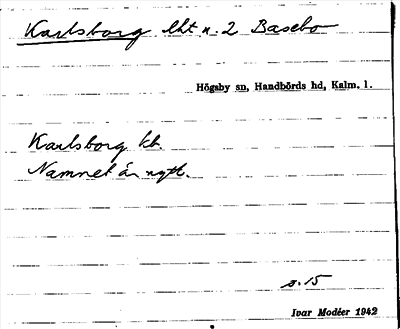 Karlsborg lht n. 2 Basebo
Högsby sn, Handbörds hd, Kalm. l.
Karlsborg
Namnet är nytt.
s. 15
Ivar Modéer 1942